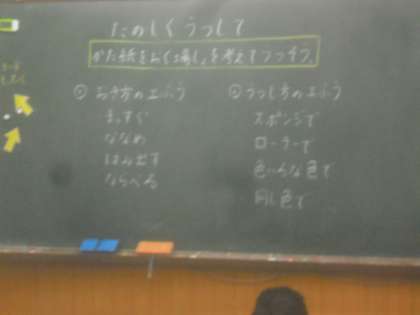 たのしくうつして
かた紙をおく場しょを考えてうつそう。
① おき方のくふう
まっすぐ
ななめ
はみ出す
ならべる
② うつし方のくふう
スポンジで
ローラーで
色いろな色で
同じ色で